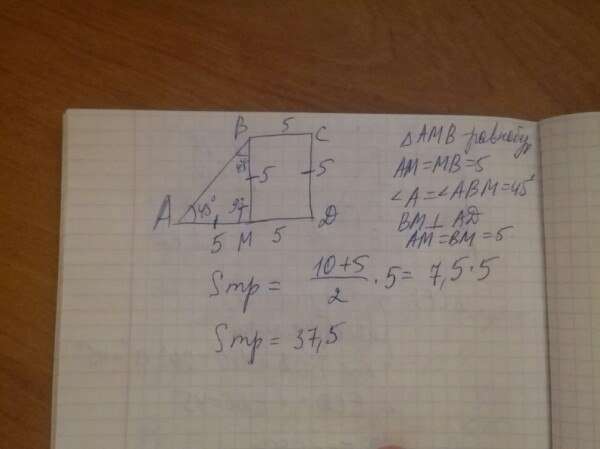 B 5 C
45
5 5
A 45° 90
5 M 5 D
△AMB равнобед
AM = MB = 5
∠A = ∠ABM = 45°
BM ⊥ AD
AM = BM = 5
Sтр = 10+5/2 · 5 = 7,5 · 5
Sтр = 37,5